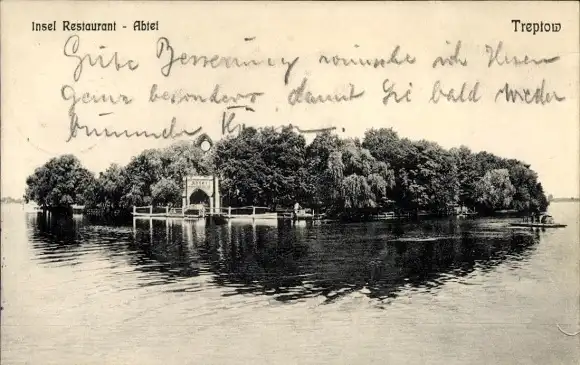 Insel Restaurant - Abtei
Treptow
Gute Besserung wünsche ich Ihnen
ganz besonders damit Sie bald wieder
bummeln können.